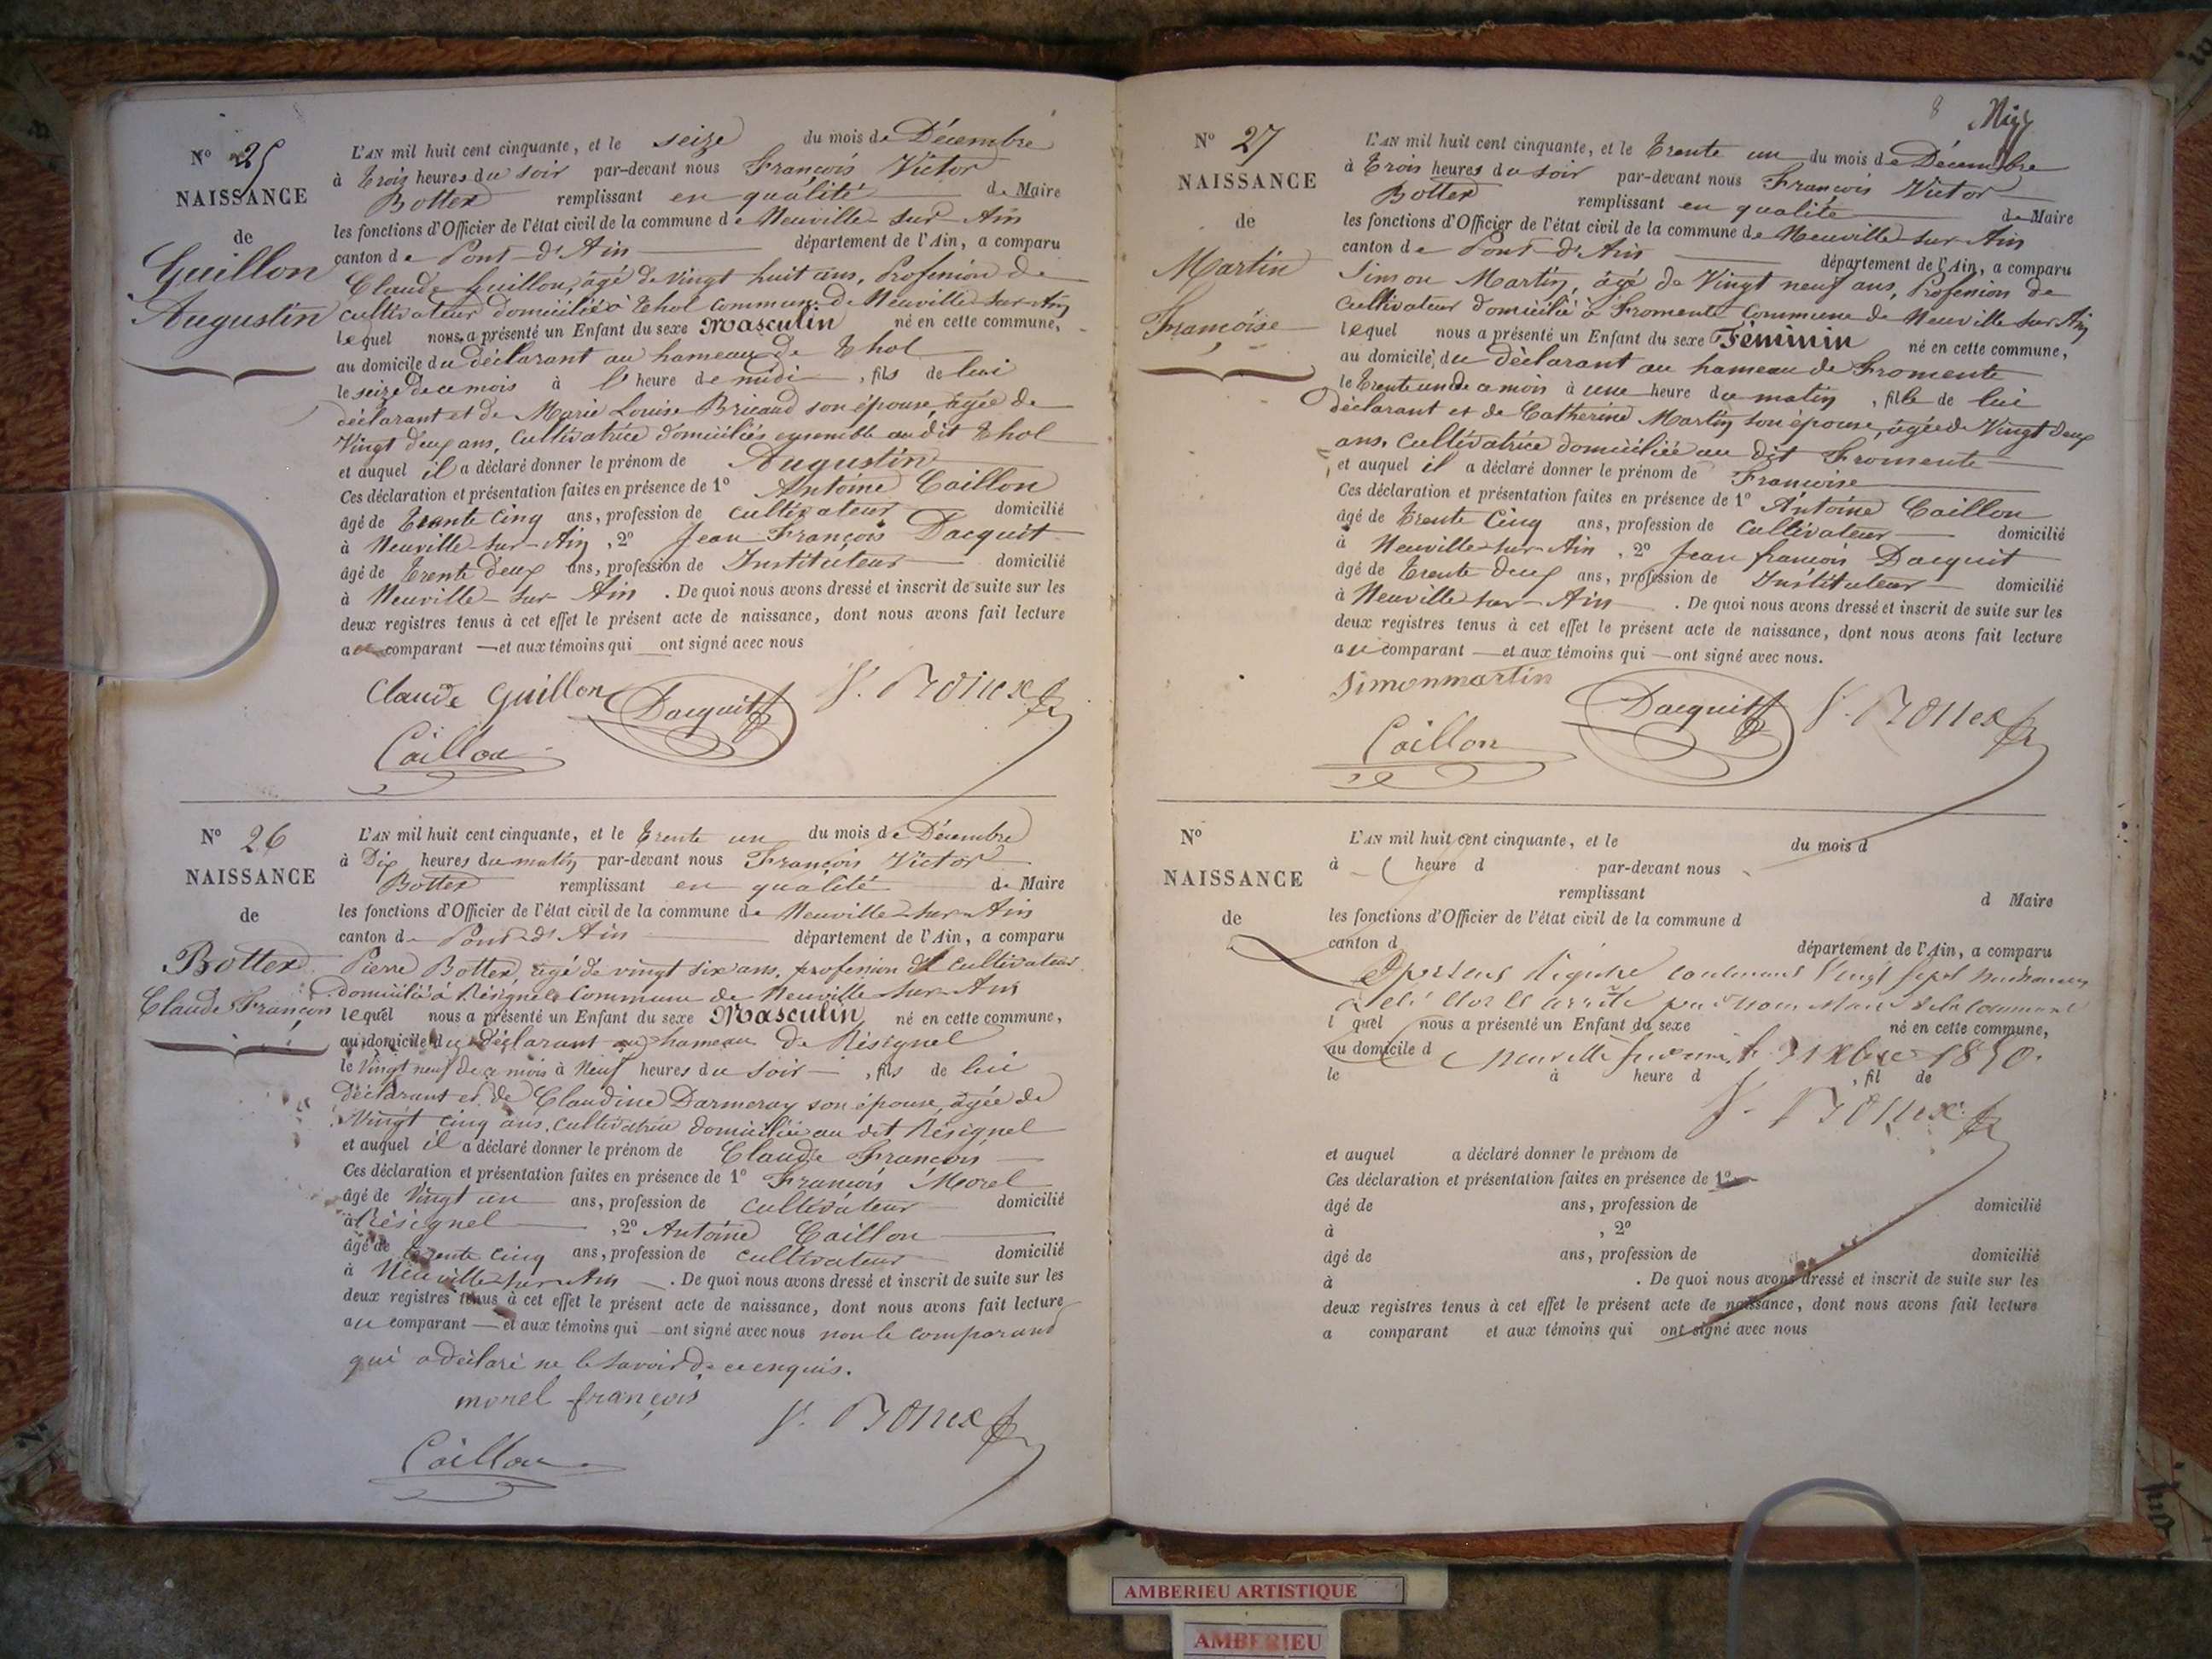 N° 25
NAISSANCE
de
Guillon
Augustin
L'AN mil huit cent cinquante, et le seize du mois de Décembre
à trois heures du soir par-devant nous François Victor
Bottex remplissant en qualité de Maire
les fonctions d'Officier de l'état civil de la commune de Neuville-sur-Ain
canton de Pont-d'Ain département de l'Ain, a comparu
Claude Guillon, âgé de vingt huit ans, Profession de
cultivateur domicilié à Thol commune de Neuville sur Ain
lequel nous a présenté un Enfant du sexe Masculin né en cette commune,
au domicile du déclarant au hameau de Thol
le seize de ce mois à l' heure de midi, fils de lui
déclarant et de Marie Louise Bricaud son épouse, âgée de
Vingt deux ans, Cultivatrice domiciliés ensemble au dit Thol
et auquel il a déclaré donner le prénom de Augustin
Ces déclaration et présentation faites en présence de 1° Antoine Caillon
âgé de trente cinq ans, profession de cultivateur domicilié
à Neuville-sur-Ain, 2° Jean François Dacquit
âgé de trente deux ans, profession de Instituteur domicilié
à Neuville-sur-Ain. De quoi nous avons dressé et inscrit de suite sur les
deux registres tenus à cet effet le présent acte de naissance, dont nous avons fait lecture
au comparant — et aux témoins qui ont signé avec nous
Claude Guillon Dacquit V. Bottex
Caillon
N° 26
NAISSANCE
de
Bottex
Claude François
L'AN mil huit cent cinquante, et le trente un du mois de Décembre
à Dix heures du matin par-devant nous François Victor
Bottex remplissant en qualité de Maire
les fonctions d'Officier de l'état civil de la commune de Neuville-sur-Ain
canton de Pont-d'Ain département de l'Ain, a comparu
Pierre Bottex, âgé de vingt six ans, profession de cultivateur
domicilié à Résignel commune de Neuville sur Ain
lequel nous a présenté un Enfant du sexe Masculin né en cette commune,
au domicile du déclarant au hameau de Résignel
le Vingt neuf de ce mois à Neuf heures du soir, fils de lui
déclarant et de Claudine Darmeray son épouse, âgée de
Vingt cinq ans, cultivatrice domiciliée au dit Résignel
et auquel il a déclaré donner le prénom de Claude François
Ces déclaration et présentation faites en présence de 1° François Morel
âgé de Vingt un ans, profession de cultivateur domicilié
à Résignel, 2° Antoine Caillon
âgé de trente cinq ans, profession de cultivateur domicilié
à Neuville sur Ain. De quoi nous avons dressé et inscrit de suite sur les
deux registres tenus à cet effet le présent acte de naissance, dont nous avons fait lecture
au comparant — et aux témoins qui ont signé avec nous non le comparant
qui a déclaré ne le savoir de ce enquis.
morel françois V. Bottex
Caillon
8
N° 27
NAISSANCE
de
Martin
Françoise
L'AN mil huit cent cinquante, et le trente un du mois de Décembre
à trois heures du soir par-devant nous François Victor
Bottex remplissant en qualité de Maire
les fonctions d'Officier de l'état civil de la commune de Neuville-sur-Ain
canton de Pont-d'Ain département de l'Ain, a comparu
Simon Martin, âgé de Vingt neuf ans, Profession de
cultivateur domicilié à Fromente Commune de Neuville sur Ain
lequel nous a présenté un Enfant du sexe Féminin né en cette commune,
au domicile du déclarant au hameau de Fromente
le trente un de ce mois à une heure du matin, fille de lui
déclarant et de Catherine Martin son épouse, âgée de Vingt deux
ans, cultivatrice domiciliée au dit Fromente
et auquel il a déclaré donner le prénom de Françoise
Ces déclaration et présentation faites en présence de 1° Antoine Caillon
âgé de trente cinq ans, profession de Cultivateur domicilié
à Neuville sur Ain, 2° Jean françois Dacquit
âgé de trente deux ans, profession de Instituteur domicilié
à Neuville sur-Ain. De quoi nous avons dressé et inscrit de suite sur les
deux registres tenus à cet effet le présent acte de naissance, dont nous avons fait lecture
au comparant — et aux témoins qui — ont signé avec nous.
Simon martin Dacquit V. Bottex
Caillon
N°
NAISSANCE
de
L'AN mil huit cent cinquante, et le du mois d
à heure d par-devant nous
remplissant d Maire
les fonctions d'Officier de l'état civil de la commune d
canton d département de l'Ain, a comparu
Le présent registre contenant Vingt sept naissances
a été clos et arrêté par nous Maire de la commune
l quel nous a présenté un Enfant du sexe né en cette commune,
au domicile d
Neuville sur ain, le 31 Xbre 1850.
le à heure d , fil de
V. Bottex
et auquel a déclaré donner le prénom de
Ces déclaration et présentation faites en présence de 1°
âgé de ans, profession de domicilié
à , 2°
âgé de ans, profession de domicilié
à . De quoi nous avons dressé et inscrit de suite sur les
deux registres tenus à cet effet le présent acte de naissance, dont nous avons fait lecture
a comparant et aux témoins qui ont signé avec nous
AMBERIEU ARTISTIQUE
AMBERIEU